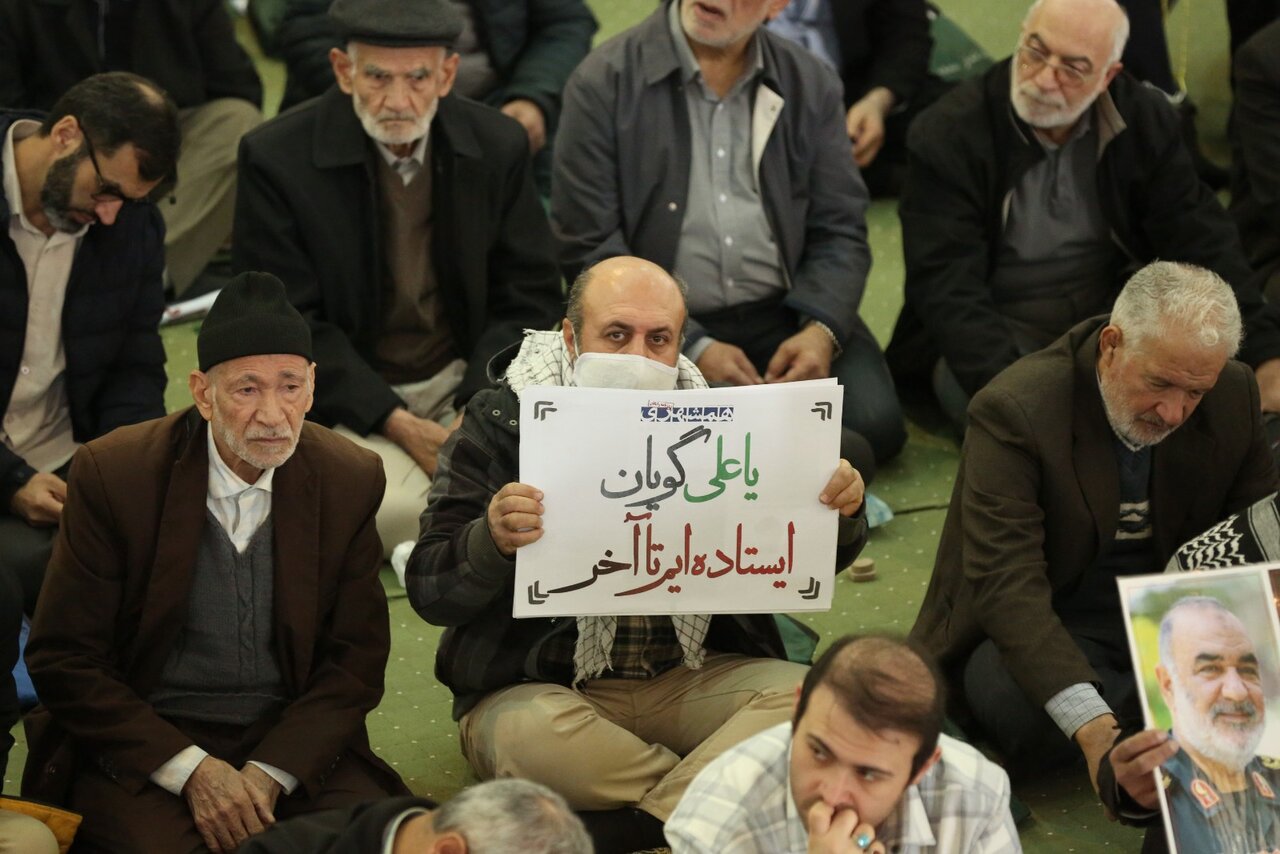 همشهری
یا علی گویان
ایستاده ایم تا آخر